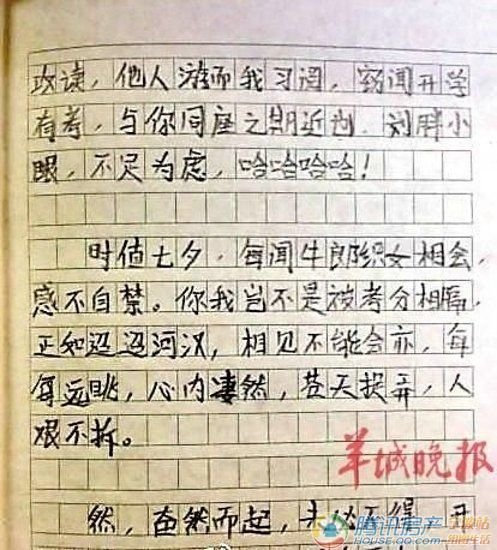 攻读，他人游而我习诵，窃闻开学
有考，与你同座之期近也，刘胖小
眼，不足为虑，哈哈哈哈！
时值七夕，每闻牛郎织女相会，
感不自禁。你我岂不是被考分相隔，
正如迢迢河汉，相见不能会亦，每
每远眺，心内凄然，苍天捉弄，人
艰不拆。
羊城晚报
然，奋然而起，未必不得，开
腾讯房产